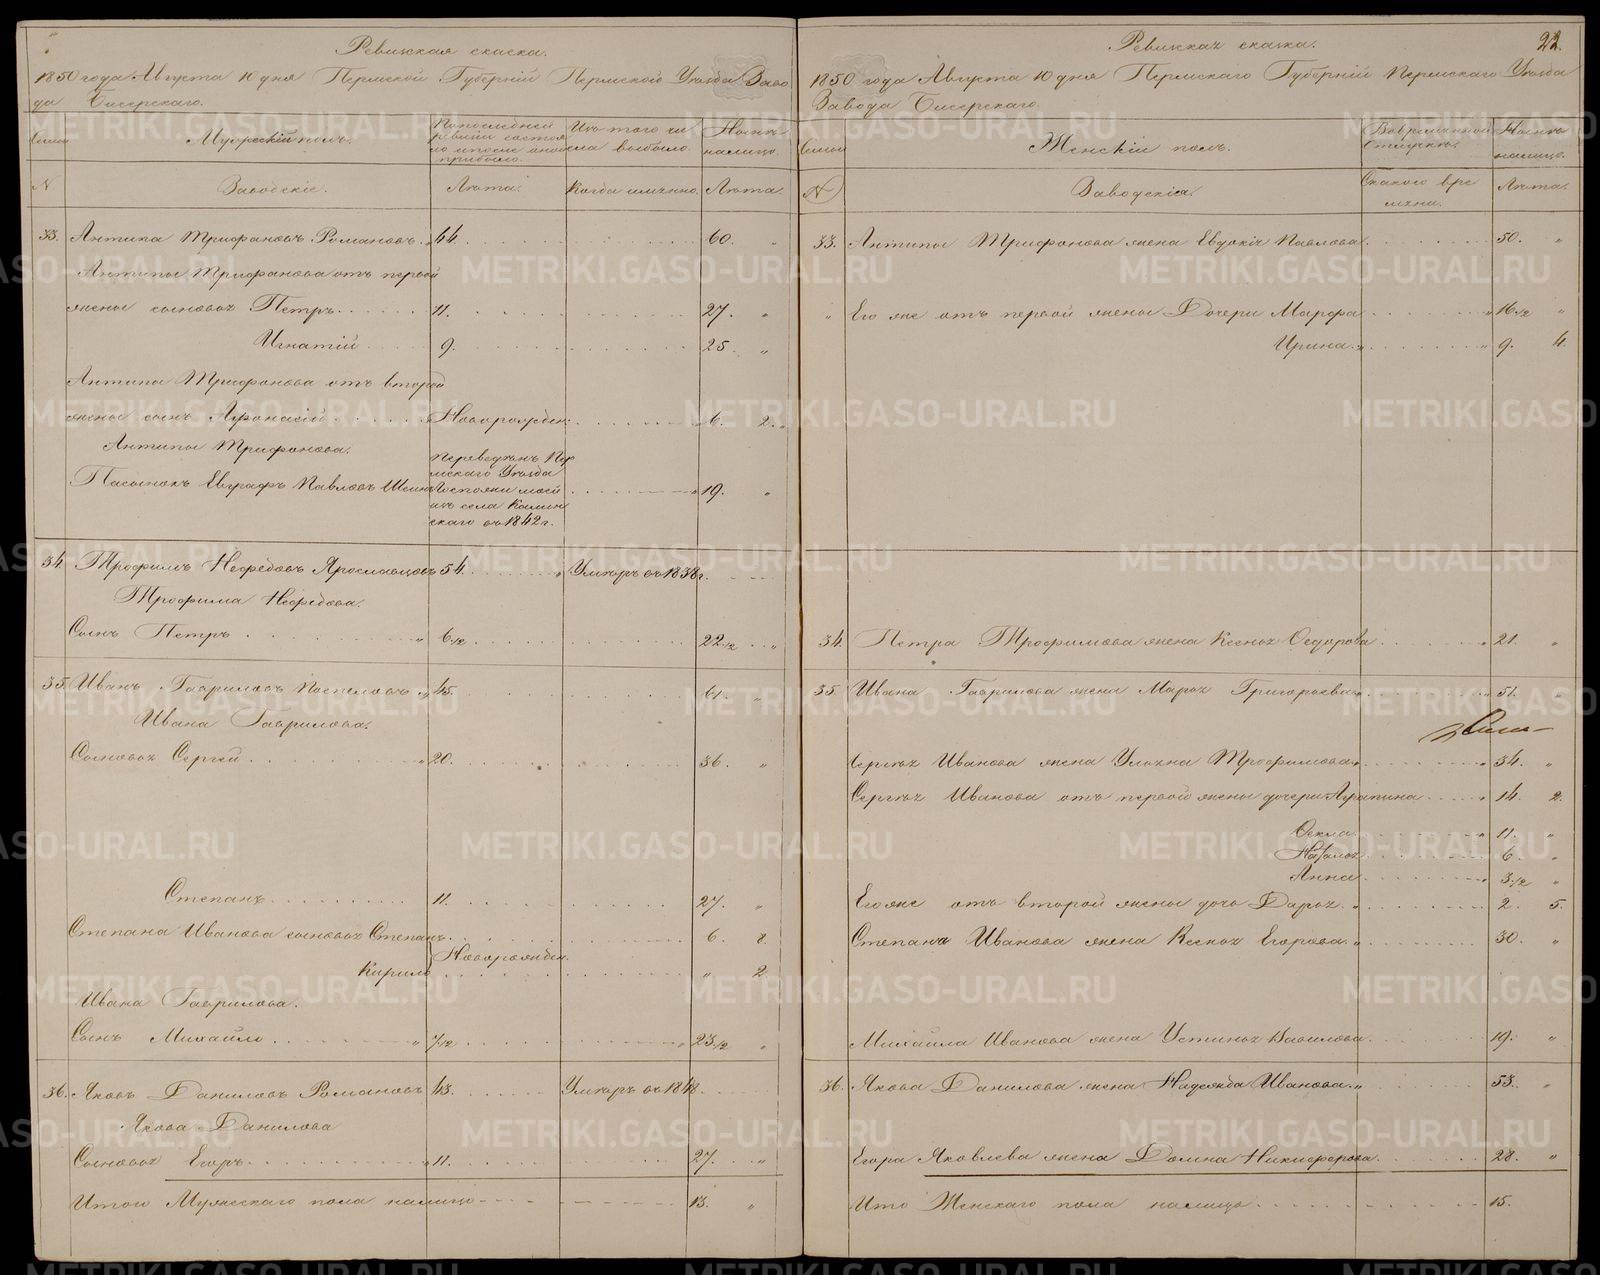 Ревизская сказка.
1850 года Августа 10 дня Пермской Губерніи Пермскаго Уѣзда Заво
да Бисерскаго.
Семьи
Мужескій полъ.
По последней ревизіи состояло и после оной прибыло.
Изъ того числа выбыло.
Нынѣ на лицо.
N
Заводскіе.
Лѣта.
Когда именно.
Лѣта.
33. Антипа Трифановъ Романовъ. 44. 60.
Антипы Трифанова отъ первой
жены сыновья Петръ 11. 27.
Игнатій 9. 25.
Антипы Трифанова отъ второй
жены сынъ Афонасій Новорожден. 6. 2.
Антипы Трифонова.
Пасынокъ Евграфъ Павловъ 19.
Переведенъ Пер
мскаго Уѣзда
изъ села Камен
скаго въ 1842 г.
34. Трофимъ Нефедовъ Ярославцовъ 54. Умеръ въ 1838 г.
Трофима Нефедова.
Сынъ Петръ 6/12 22/12
35. Иванъ Гавриловъ Поспеловъ 45. 61.
Ивана Гаврилова.
Сыновья Сергей 20. 36.
Степанъ 11. 27.
Степана Иванова сыновья Степанъ 6. 8.
Новорожден.
Кирило 2.
Ивана Гаврилова.
Сынъ Михайло 7/12 23/12
36. Яковъ Даниловъ Романовъ 43. Умеръ въ 1848.
Якова Данилова
Сыновья Егоръ 11. 27.
Итого Мужескаго пола налицо 13.
22.
Ревизская сказка.
1850 года Августа 10 дня Пермскаго Губерніи Пермскаго Уѣзда
Завода Бисерскаго.
Семьи
Женскій полъ.
Во временной отлучкѣ.
Нынѣ налицо.
N
Заводскія.
Съ какого вре
мени.
Лѣта.
33. Антипы Трифонова жена Евдокія Павлова 50.
Его же отъ первой жены Дочери Марфа 16/12
Ирина 9. 4.
34. Петра Трофимова жена Ксенья Федорова 21.
35. Ивана Гаврилова жена Марья Григорьева 51.
Сергея Иванова жена Ульяна Трофимова 34.
Сергея Иванова отъ первой жены дочери Аграпина 14. 2.
Фекла 11.
Наталья 6.
Анна 3/12
Его же отъ второй жены дочь Дарья 2. 5.
Степана Иванова жена Ксенья Егорова 30.
Михайла Иванова жена Устинья Вавилова 19.
36. Якова Данилова жена Надежда Иванова 53.
Егора Яковлева жена Домна Никифорова 28.
Итого Женскаго пола налицо 15.
METRIKI.GASO-URAL.RU